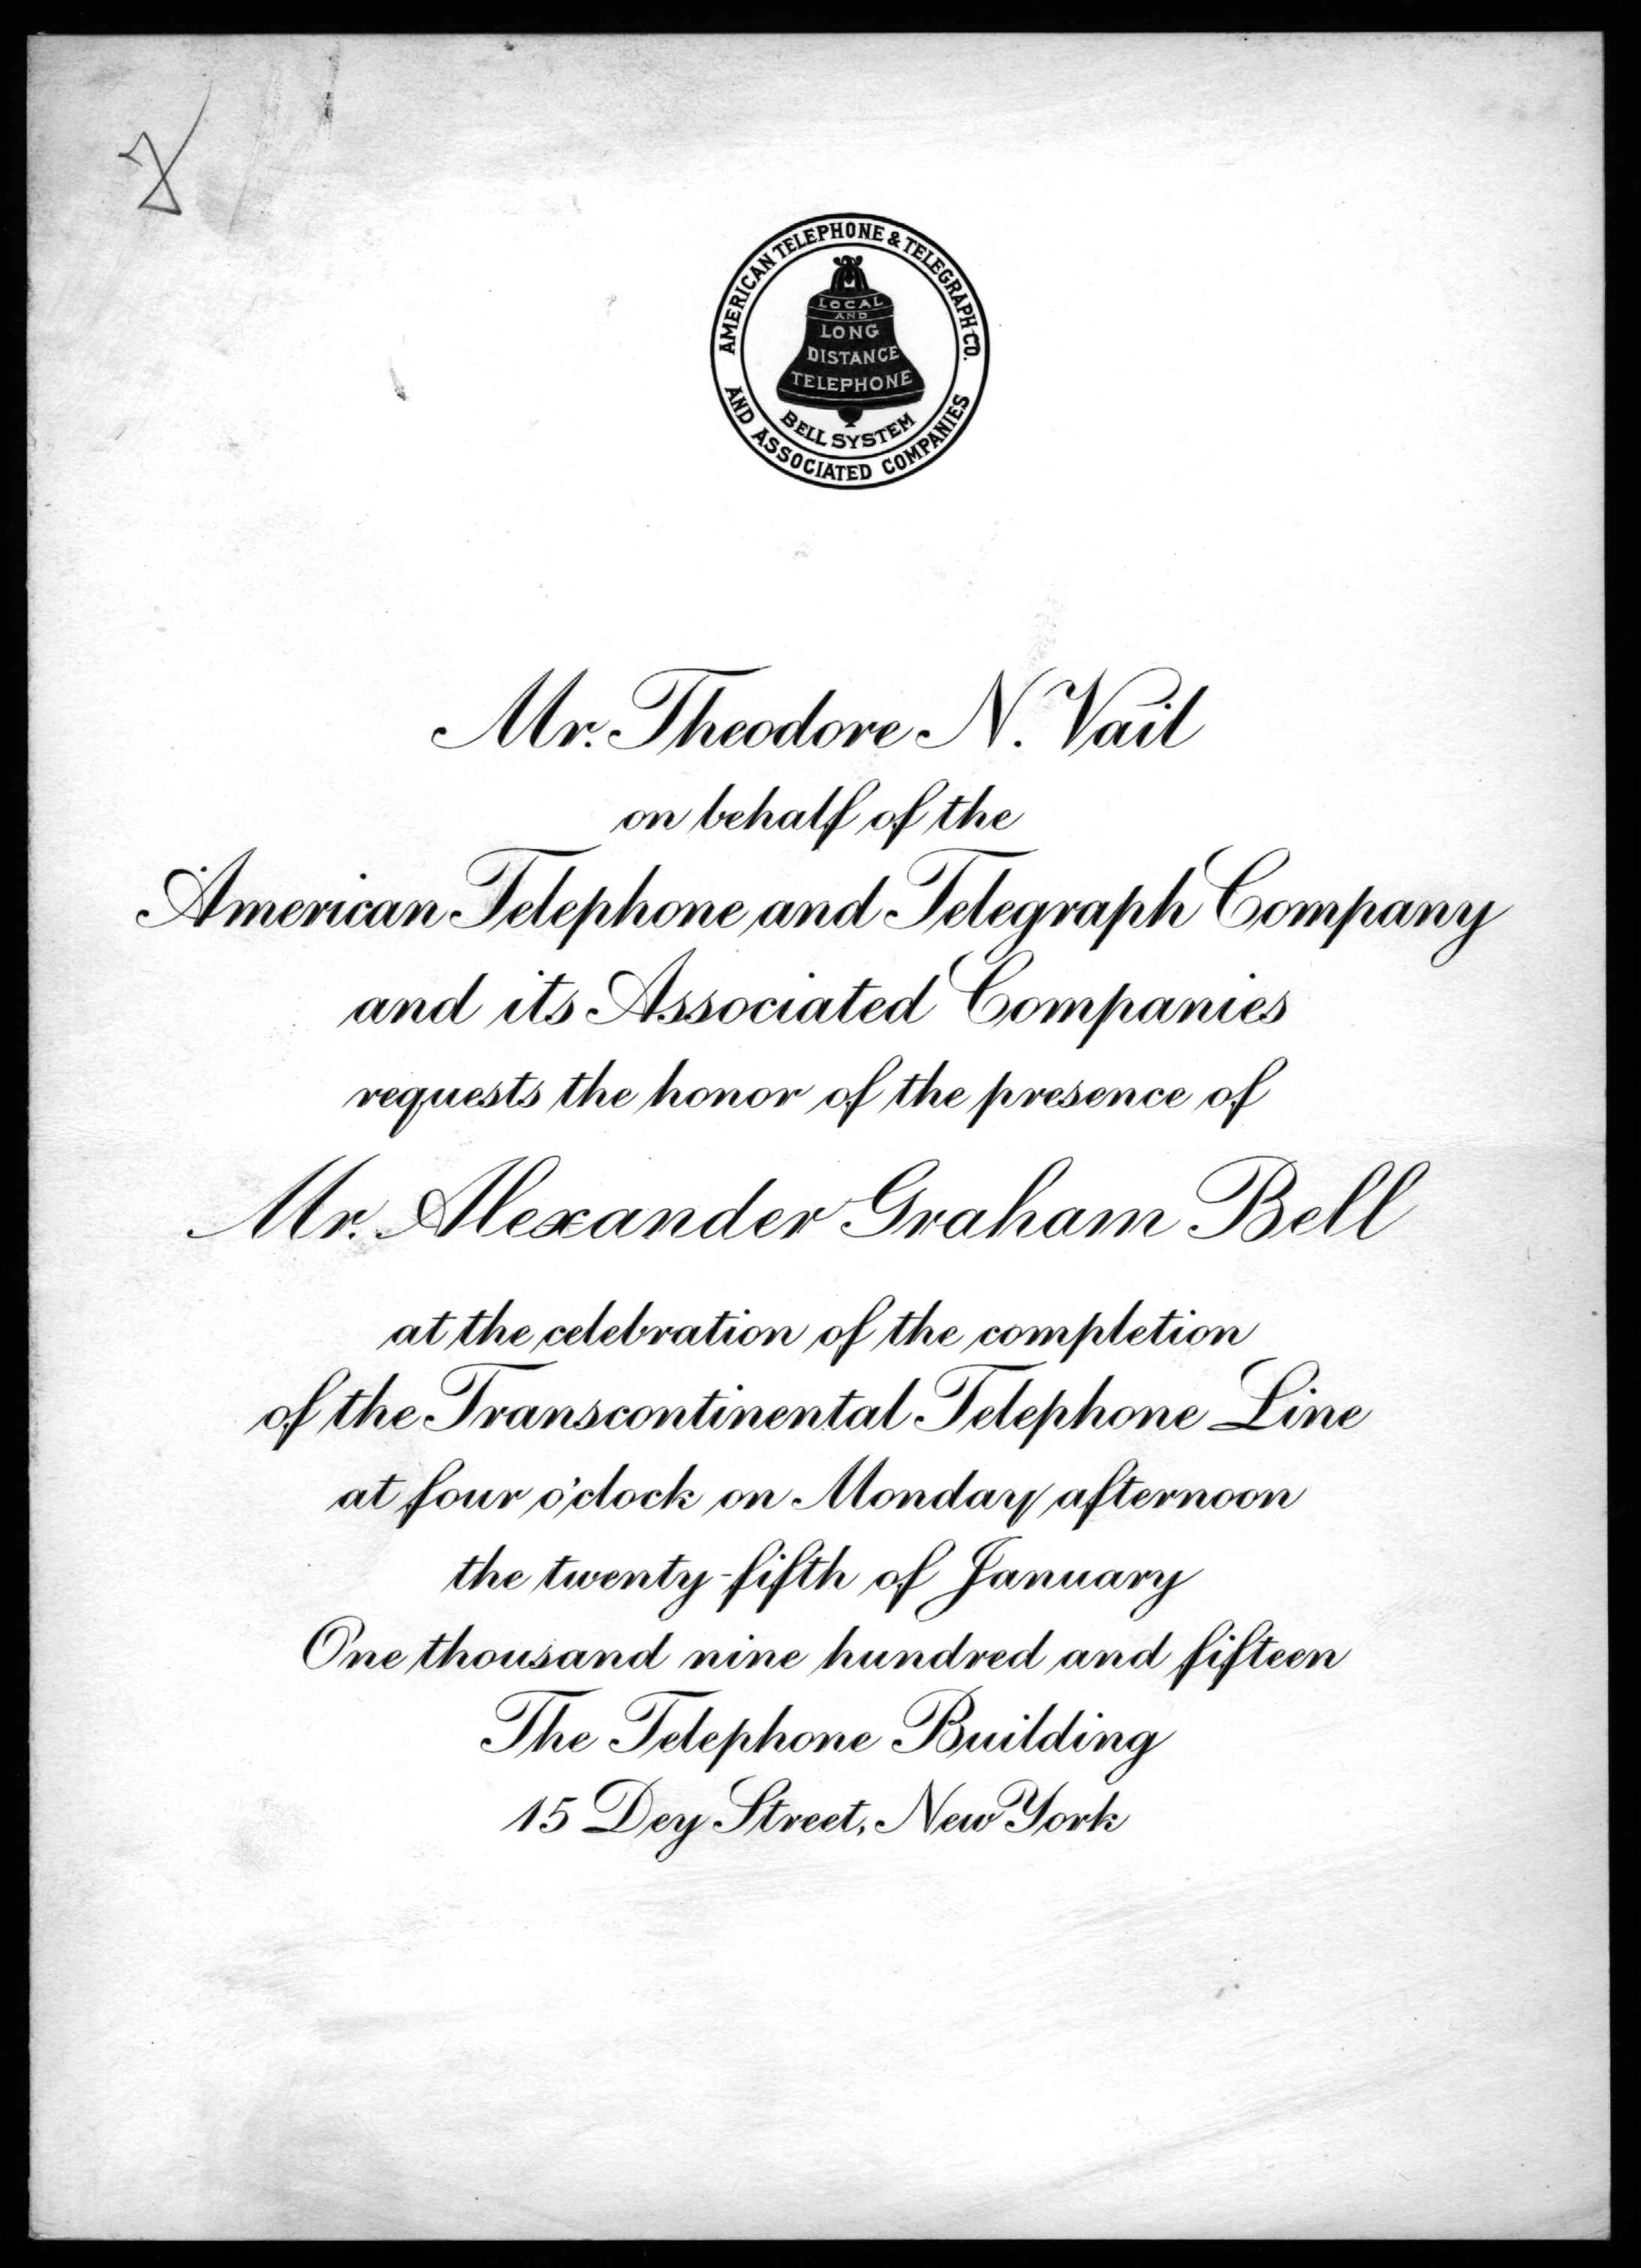 AMERICAN TELEPHONE & TELEGRAPH CO.
AND ASSOCIATED COMPANIES
LOCAL
AND
LONG
DISTANCE
TELEPHONE
BELL SYSTEM
Mr. Theodore N. Vail
on behalf of the
American Telephone and Telegraph Company
and its Associated Companies
requests the honor of the presence of
Mr. Alexander Graham Bell
at the celebration of the completion
of the Transcontinental Telephone Line
at four o'clock on Monday afternoon
the twenty-fifth of January
One thousand nine hundred and fifteen
The Telephone Building
15 Dey Street, New York